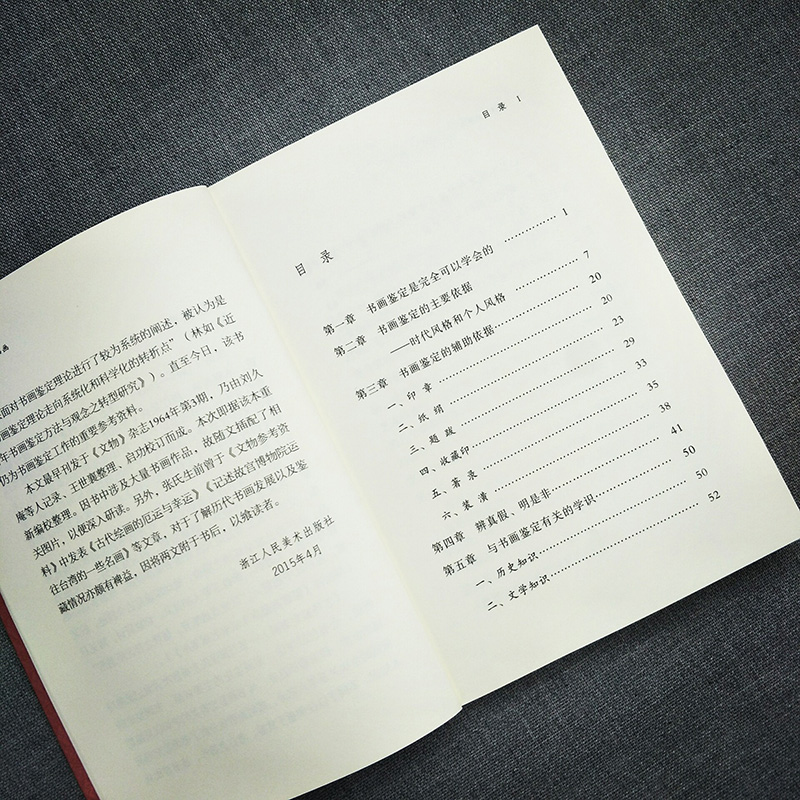 面对书画鉴定理论进行了较为系统的阐述，被认为是
画鉴定理论走向系统化和科学化的转折点”（林如《近
年书画鉴定方法与观念之转型研究》）。直至今日，该书
仍为书画鉴定工作的重要参考资料。
本文最早刊发于《文物》杂志1964年第3期，乃由刘久
庵等人记录、王世襄整理、启功校订而成。本次即据该本重
新编校整理。因书中涉及大量书画作品，故随文插配了相
关图片，以便深入研读。另外，张氏生前曾于《文物参考资
料》中发表《古代绘画的厄运与幸运》《记述故宫博物院运
往台湾的一些名画》等文章，对于了解历代书画发展以及鉴
藏情况亦颇有裨益，因将两文附于书后，以飨读者。
浙江人民美术出版社
2015年4月
目 录 1
目 录
第一章 书画鉴定是完全可以学会的 ……………… 1
第二章 书画鉴定的主要依据
——时代风格和个人风格 ……………… 7
第三章 书画鉴定的辅助依据 ……………… 20
一、印 章 ……………… 20
二、纸 绢 ……………… 23
三、题 跋 ……………… 29
四、收藏印 ……………… 33
五、著 录 ……………… 35
六、装 潢 ……………… 38
第四章 辨真假、明是非 ……………… 41
第五章 与书画鉴定有关的学识 ……………… 50
一、历史知识 ……………… 50
二、文学知识 ……………… 52